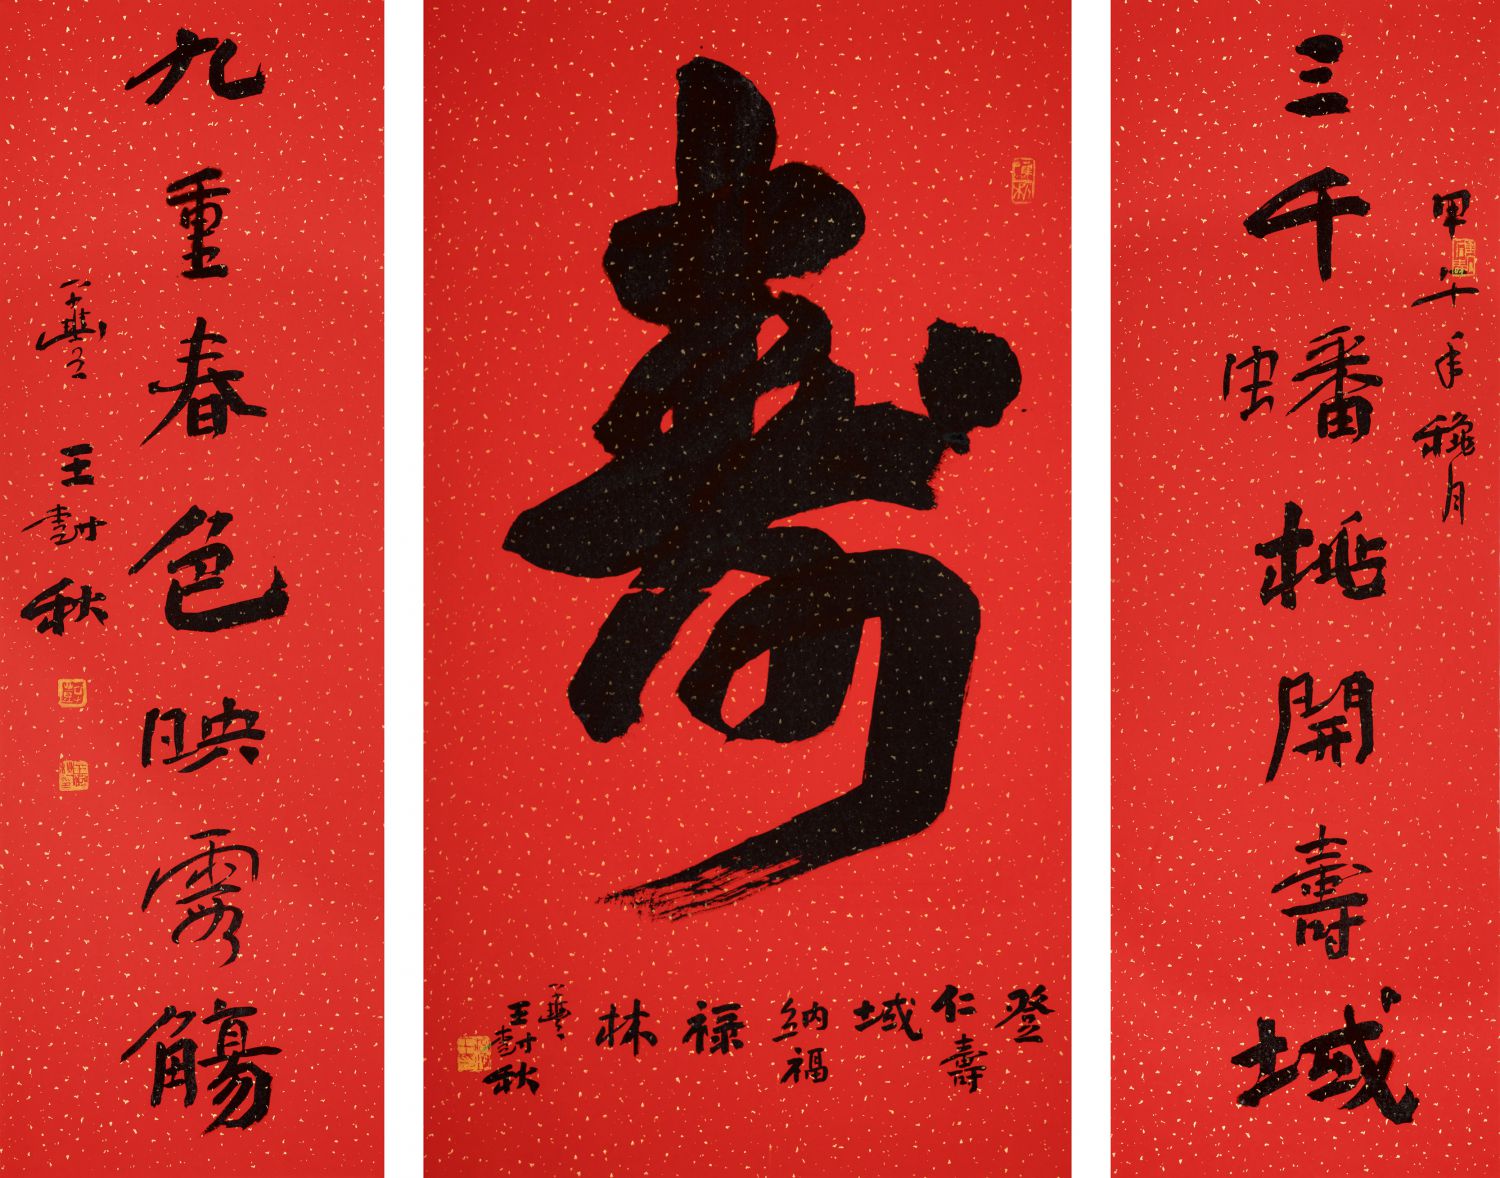 甲午年穐月
三千蟠桃開壽域
壽
登仁壽域納福祿林
王 秋
九重春色映霞觴
王 秋